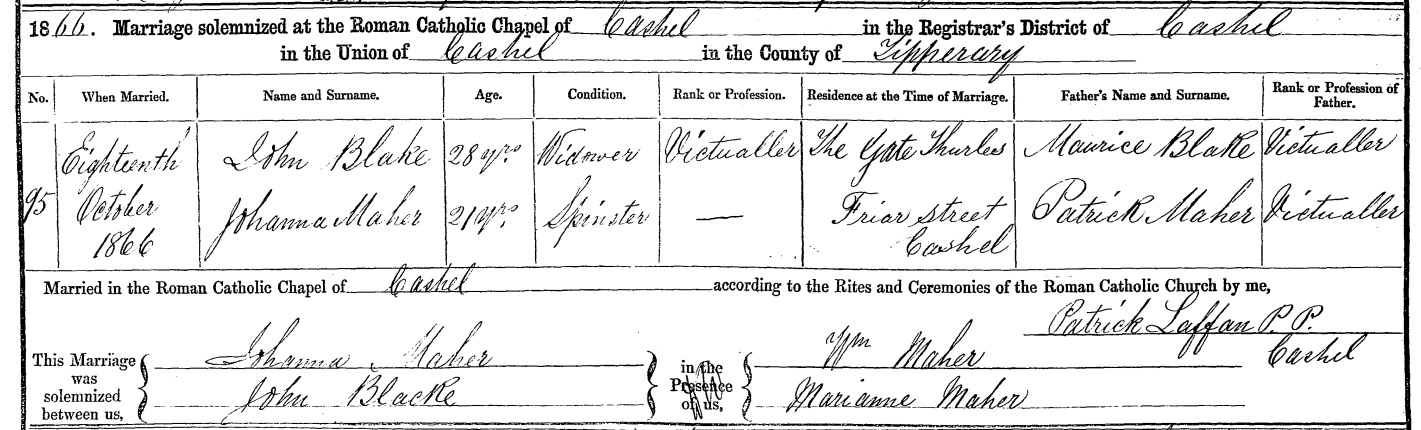 1866. Marriage solemnized at the Roman Catholic Chapel of Cashel in the Registrar's District of Cashel
in the Union of Cashel in the County of Tipperary
No. When Married. Name and Surname. Age. Condition. Rank or Profession. Residence at the Time of Marriage. Father's Name and Surname. Rank or Profession of Father.
95 Eighteenth October 1866
John Blake 28 yrs Widower Victualler The Gate Thurles Maurice Blake Victualler
Johanna Maher 21 yrs Spinster — Friar Street Cashel Patrick Maher Victualler
Married in the Roman Catholic Chapel of Cashel according to the Rites and Ceremonies of the Roman Catholic Church by me,
Patrick Laffan P. P.
Cashel
This Marriage was solemnized between us,
Johanna Maher
John Blacke
in the Presence of us,
Wm Maher
Marianne Maher